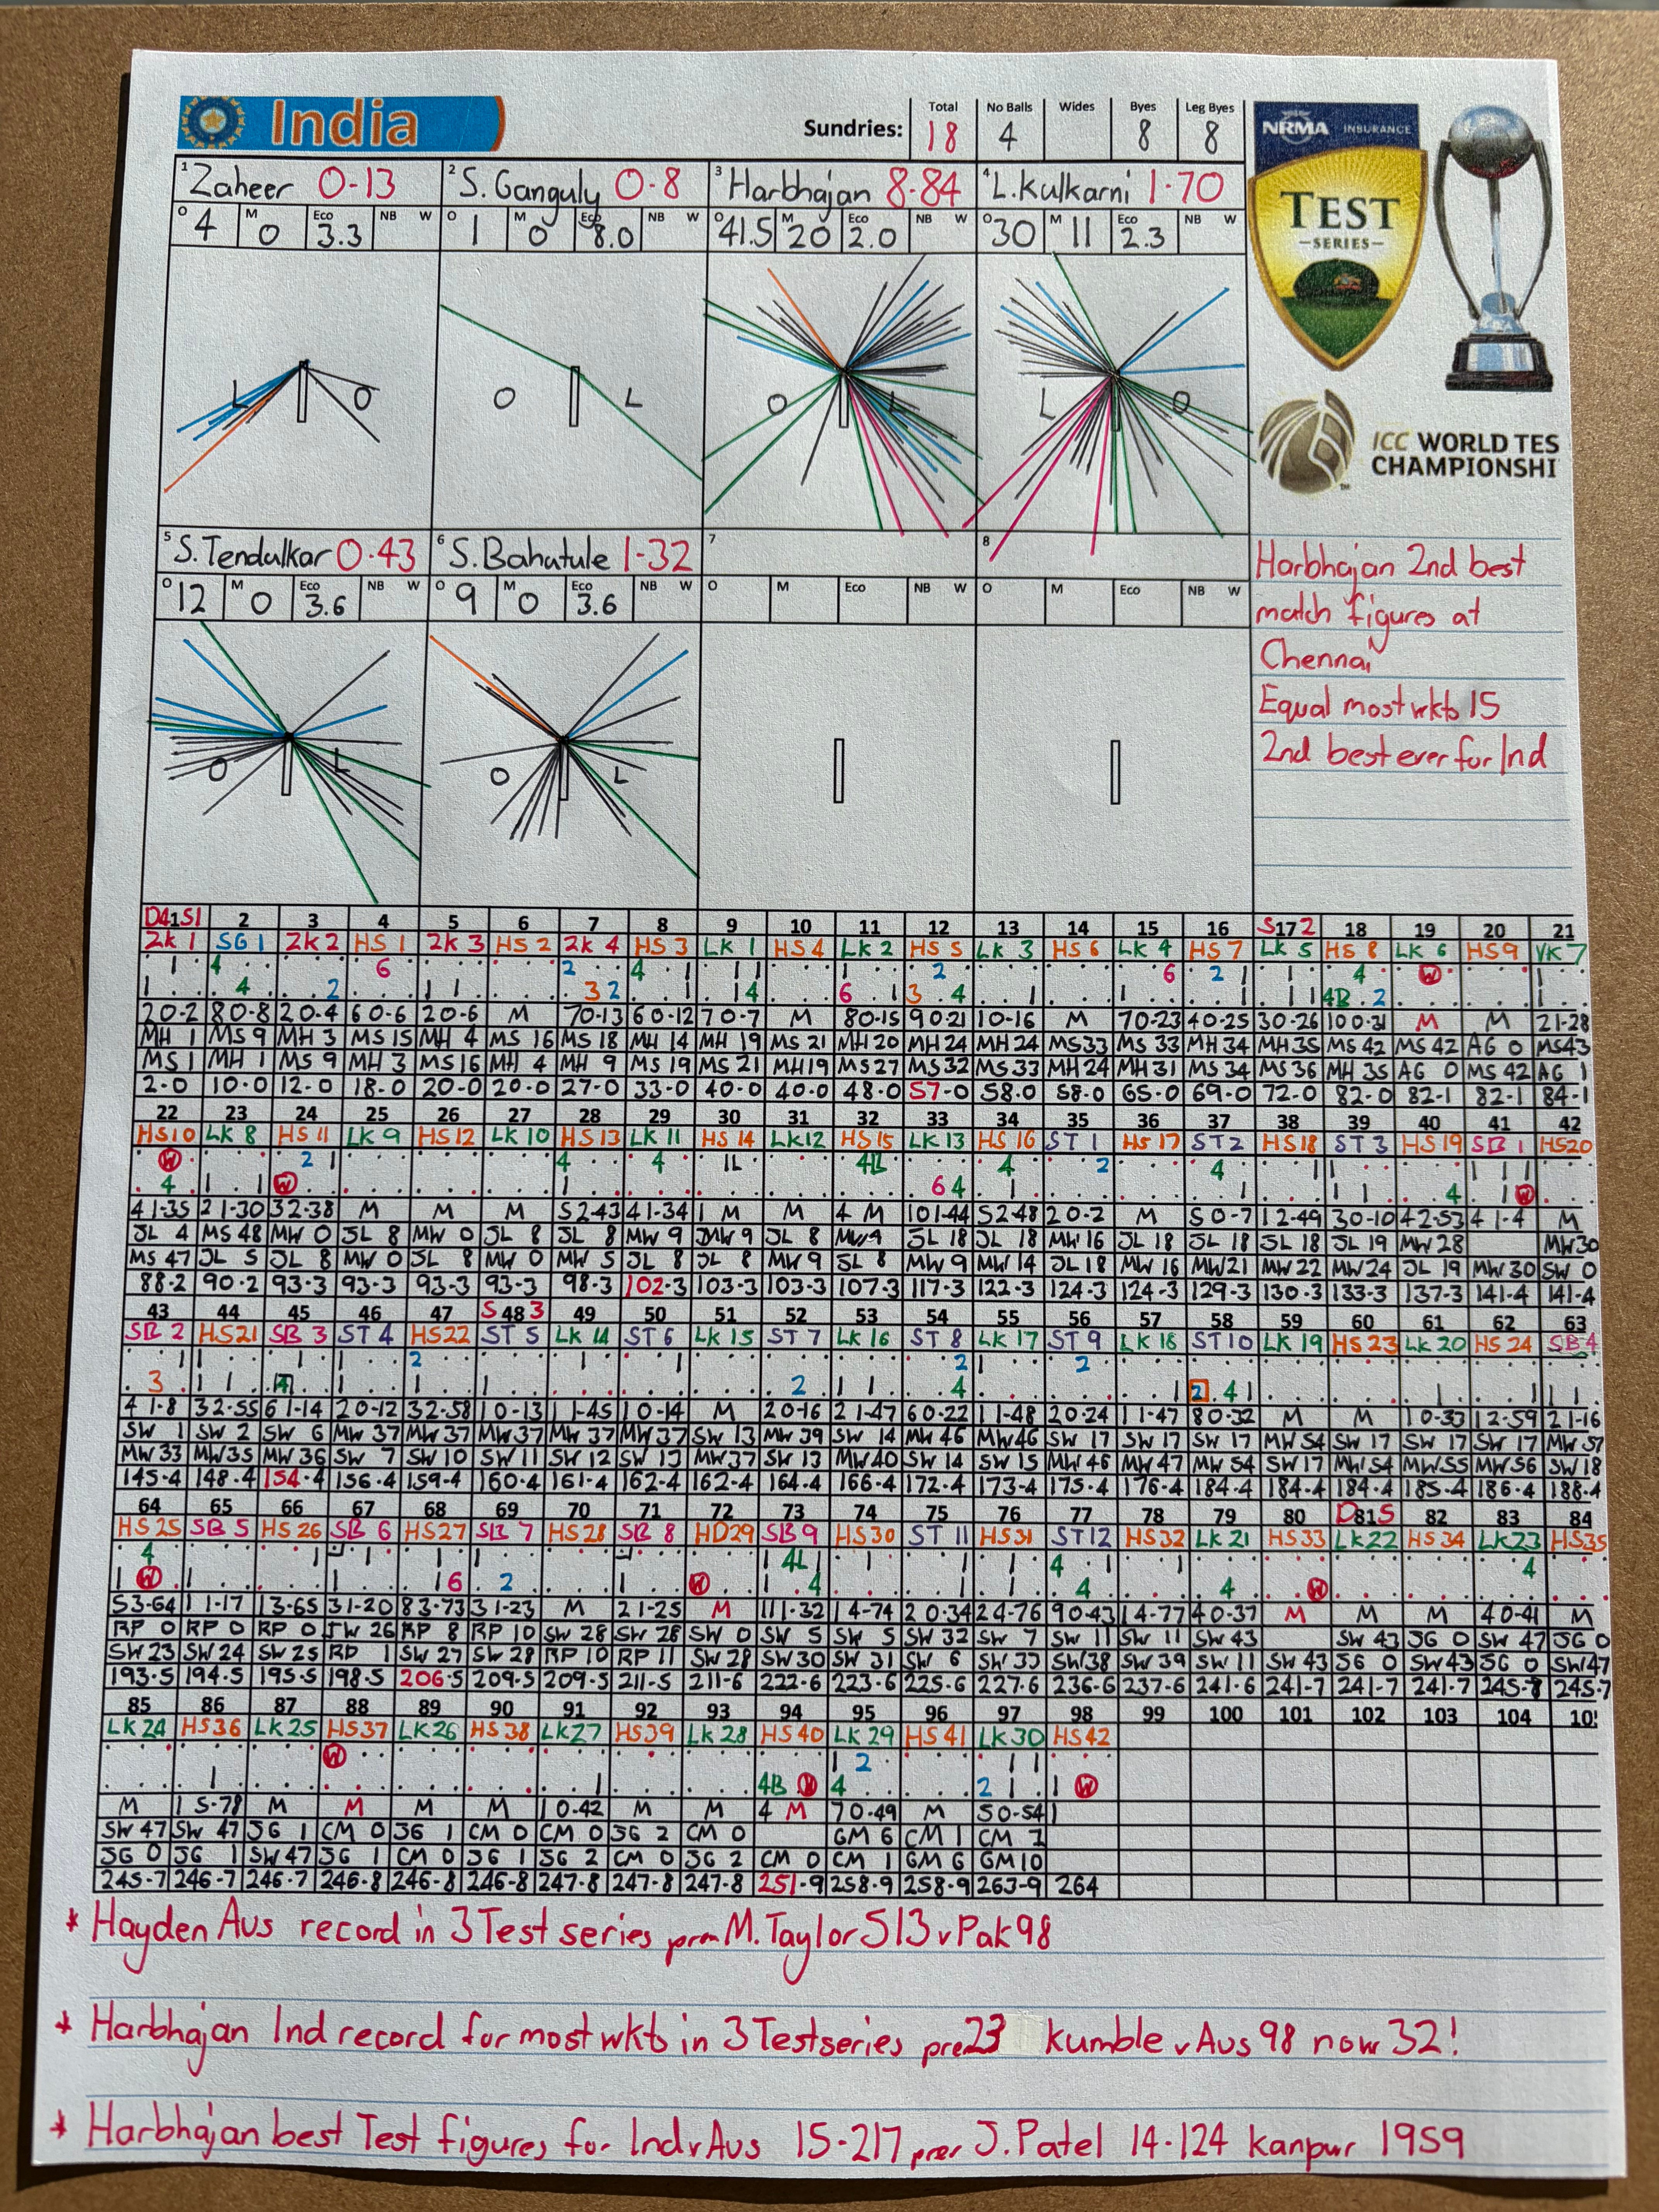 India
Sundries:
Total No Balls Wides Byes Leg Byes
18 4 8 8
NRMA INSURANCE
TEST
SERIES
ICC WORLD TES
CHAMPIONSHI
1 Zaheer 0-13 2 S. Ganguly 0-8 3 Harbhajan 8-84 4 L. Kulkarni 1-70
O 4 M 0 Eco 3.3 NB W O 1 M 0 Eco 8.0 NB W O 41.5 M 20 Eco 2.0 NB W O 30 M 11 Eco 2.3 NB W
L O O L O L L O
5 S. Tendulkar 0-43 6 S. Bahutule 1-32 7 8
O 12 M 0 Eco 3.6 NB W O 9 M 0 Eco 3.6 NB W O M Eco NB W O M Eco NB W
O L O L
Harbhajan 2nd best
match figures at
Chennai
Equal most wkts 15
2nd best ever for Ind
D4 1 S1 2 3 4 5 6 7 8 9 10 11 12 13 14 15 16 S 17 2 18 19 20 21
ZK 1 SG 1 ZK 2 HS 1 ZK 3 HS 2 ZK 4 HS 3 LK 1 HS 4 LK 2 HS 5 LK 3 HS 6 LK 4 HS 7 LK 5 HS 8 LK 6 HS 9 VK 7
20-2 80-8 20-4 60-6 20-6 M 70-13 60-12 70-7 M 80-15 90-21 10-16 M 70-23 40-25 30-26 100-31 M M 21-28
MH 1 MS 9 MH 3 MS 15 MH 4 MS 16 MS 18 MH 14 MH 19 MS 21 MH 20 MH 24 MH 24 MS 33 MS 33 MH 34 MH 35 MS 42 MS 42 AG 0 MS 43
MS 1 MH 1 MS 9 MH 3 MS 16 MH 4 MH 9 MS 19 MS 21 MH 19 MS 27 MS 32 MS 33 MH 24 MH 31 MS 34 MS 36 MH 35 AG 0 MS 42 AG 1
2-0 10-0 12-0 18-0 20-0 20-0 27-0 33-0 40-0 40-0 48-0 57-0 58-0 58-0 65-0 69-0 72-0 82-0 82-1 82-1 84-1
22 23 24 25 26 27 28 29 30 31 32 33 34 35 36 37 38 39 40 41 42
HS 10 LK 8 HS 11 LK 9 HS 12 LK 10 HS 13 LK 11 HS 14 LK 12 HS 15 LK 13 HS 16 ST 1 HS 17 ST 2 HS 18 ST 3 HS 19 SB 1 HS 20
41-35 21-30 32-38 M M M 52-43 41-34 1 M M 4 M 101-44 52-48 20-2 M 50-7 12-49 30-10 42-53 41-4 M
JL 4 MS 48 MW 0 JL 8 MW 0 JL 8 JL 8 MW 9 MW 9 JL 8 MW 9 JL 18 JL 18 MW 16 JL 18 JL 18 JL 18 JL 19 MW 28 MW 30
MS 47 JL 5 JL 8 MW 0 JL 8 MW 0 MW 5 JL 8 JL 8 MW 9 JL 8 MW 9 MW 14 JL 18 MW 16 MW 21 MW 22 MW 24 JL 19 MW 30 SW 0
88-2 90-2 93-3 93-3 93-3 93-3 98-3 102-3 103-3 103-3 107-3 117-3 122-3 124-3 124-3 129-3 130-3 133-3 137-3 141-4 141-4
43 44 45 46 47 S 48 3 49 50 51 52 53 54 55 56 57 58 59 60 61 62 63
SB 2 HS 21 SB 3 ST 4 HS 22 ST 5 LK 14 ST 6 LK 15 ST 7 LK 16 ST 8 LK 17 ST 9 LK 18 ST 10 LK 19 HS 23 LK 20 HS 24 SB 4
41-8 32-55 61-14 20-12 32-58 10-13 11-45 10-14 M 20-16 21-47 60-22 11-48 20-24 11-47 80-32 M M 10-33 12-59 21-16
SW 1 SW 2 SW 6 MW 37 MW 37 MW 37 MW 37 MW 37 SW 13 MW 39 SW 14 MW 46 MW 46 SW 17 SW 17 SW 17 MW 54 SW 17 SW 17 SW 17 MW 57
MW 33 MW 35 MW 36 SW 7 SW 10 SW 11 SW 12 SW 13 MW 37 SW 13 MW 40 SW 14 SW 15 MW 46 MW 47 MW 54 SW 17 MW 54 MW 55 MW 56 SW 18
145-4 148-4 154-4 156-4 159-4 160-4 161-4 162-4 162-4 164-4 166-4 172-4 173-4 175-4 176-4 184-4 184-4 184-4 185-4 186-4 188-4
64 65 66 67 68 69 70 71 72 73 74 75 76 77 78 79 80 D 81 5 82 83 84
HS 25 SB 5 HS 26 SB 6 HS 27 SB 7 HS 28 SB 8 HD 29 SB 9 HS 30 ST 11 HS 31 ST 12 HS 32 LK 21 HS 33 LK 22 HS 34 LK 23 HS 35
53-64 11-17 13-65 31-20 83-73 31-23 M 21-25 M 111-32 14-74 20-34 24-76 90-43 14-77 40-37 M M M 40-41 M
RP 0 RP 0 RP 0 SW 26 RP 8 RP 10 SW 28 SW 28 SW 0 SW 5 SW 5 SW 32 SW 7 SW 11 SW 11 SW 43 SW 43 JG 0 SW 47 JG 0
SW 23 SW 24 SW 25 RP 1 SW 27 SW 28 RP 10 RP 11 SW 28 SW 30 SW 31 SW 6 SW 33 SW 38 SW 39 SW 11 SW 43 JG 0 SW 43 JG 0 SW 47
193-5 194-5 195-5 198-5 206-5 209-5 209-5 211-5 211-6 222-6 223-6 225-6 227-6 236-6 237-6 241-6 241-7 241-7 241-7 245-7 245-7
85 86 87 88 89 90 91 92 93 94 95 96 97 98 99 100 101 102 103 104 10
LK 24 HS 36 LK 25 HS 37 LK 26 HS 38 LK 27 HS 39 LK 28 HS 40 LK 29 HS 41 LK 30 HS 42
M 15-78 M M M M 10-42 M M 4 M 70-49 M 50-54 1
SW 47 SW 47 JG 1 CM 0 JG 1 CM 0 CM 0 JG 2 CM 0 GM 6 CM 1 CM 1
JG 0 JG 1 SW 47 JG 1 CM 0 JG 1 JG 2 CM 0 JG 2 CM 0 CM 1 GM 6 GM 10
245-7 246-7 246-7 246-8 246-8 246-8 247-8 247-8 247-8 251-9 258-9 258-9 263-9 264
* Hayden Aus record in 3 Test series prev M. Taylor 513 v Pak 98
* Harbhajan Ind record for most wkts in 3 Test series prev 23 Kumble v Aus 98 now 32!
* Harbhajan best Test figures for Ind v Aus 15-217 prev J. Patel 14-124 Kanpur 1959